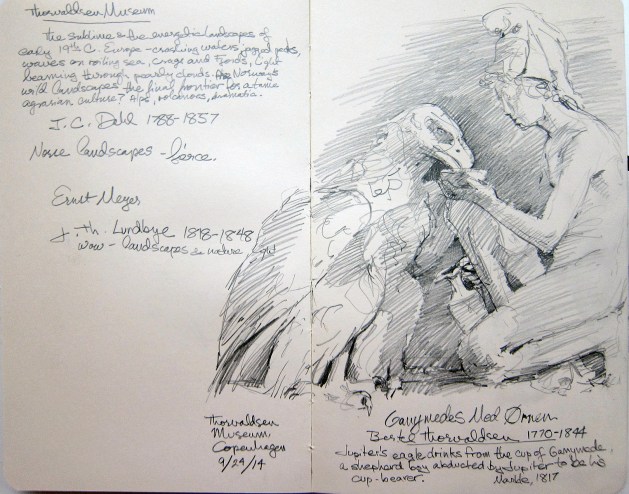 Thorvaldsen Museum
The sublime & the energetic landscapes of
early 19th C. Europe - crashing waters, jagged peaks,
waves on roiling sea, crags and fjords, light
beaming through pearly clouds. Are Norway's
wild landscapes the final frontier for a tame
agrarian culture? Alps, volcanoes, dramatic.
J. C. Dahl 1788-1857
Norse landscapes - fierce.
Ernst Meyer
J. Th. Lundbye 1818-1848
wow - landscapes & nature, light
Thorvaldsen
Museum
Copenhagen
9/24/14
Ganymedes Med Ørnen
Bertel Thorvaldsen 1770-1844
Jupiter's eagle drinks from the cup of Ganymede,
a shepherd boy abducted by Jupiter to be his
cup-bearer. Marble, 1817